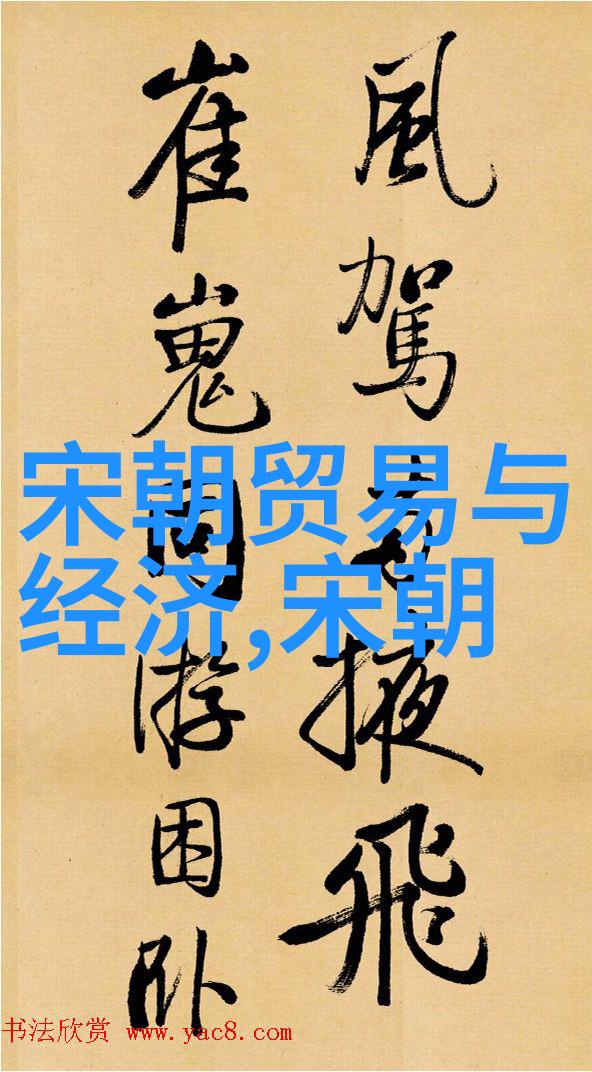 風駕掖飛
崔嵬周游困卧
宋朝贸易与
经济,宋朝
书法欣赏 www.yac8.com